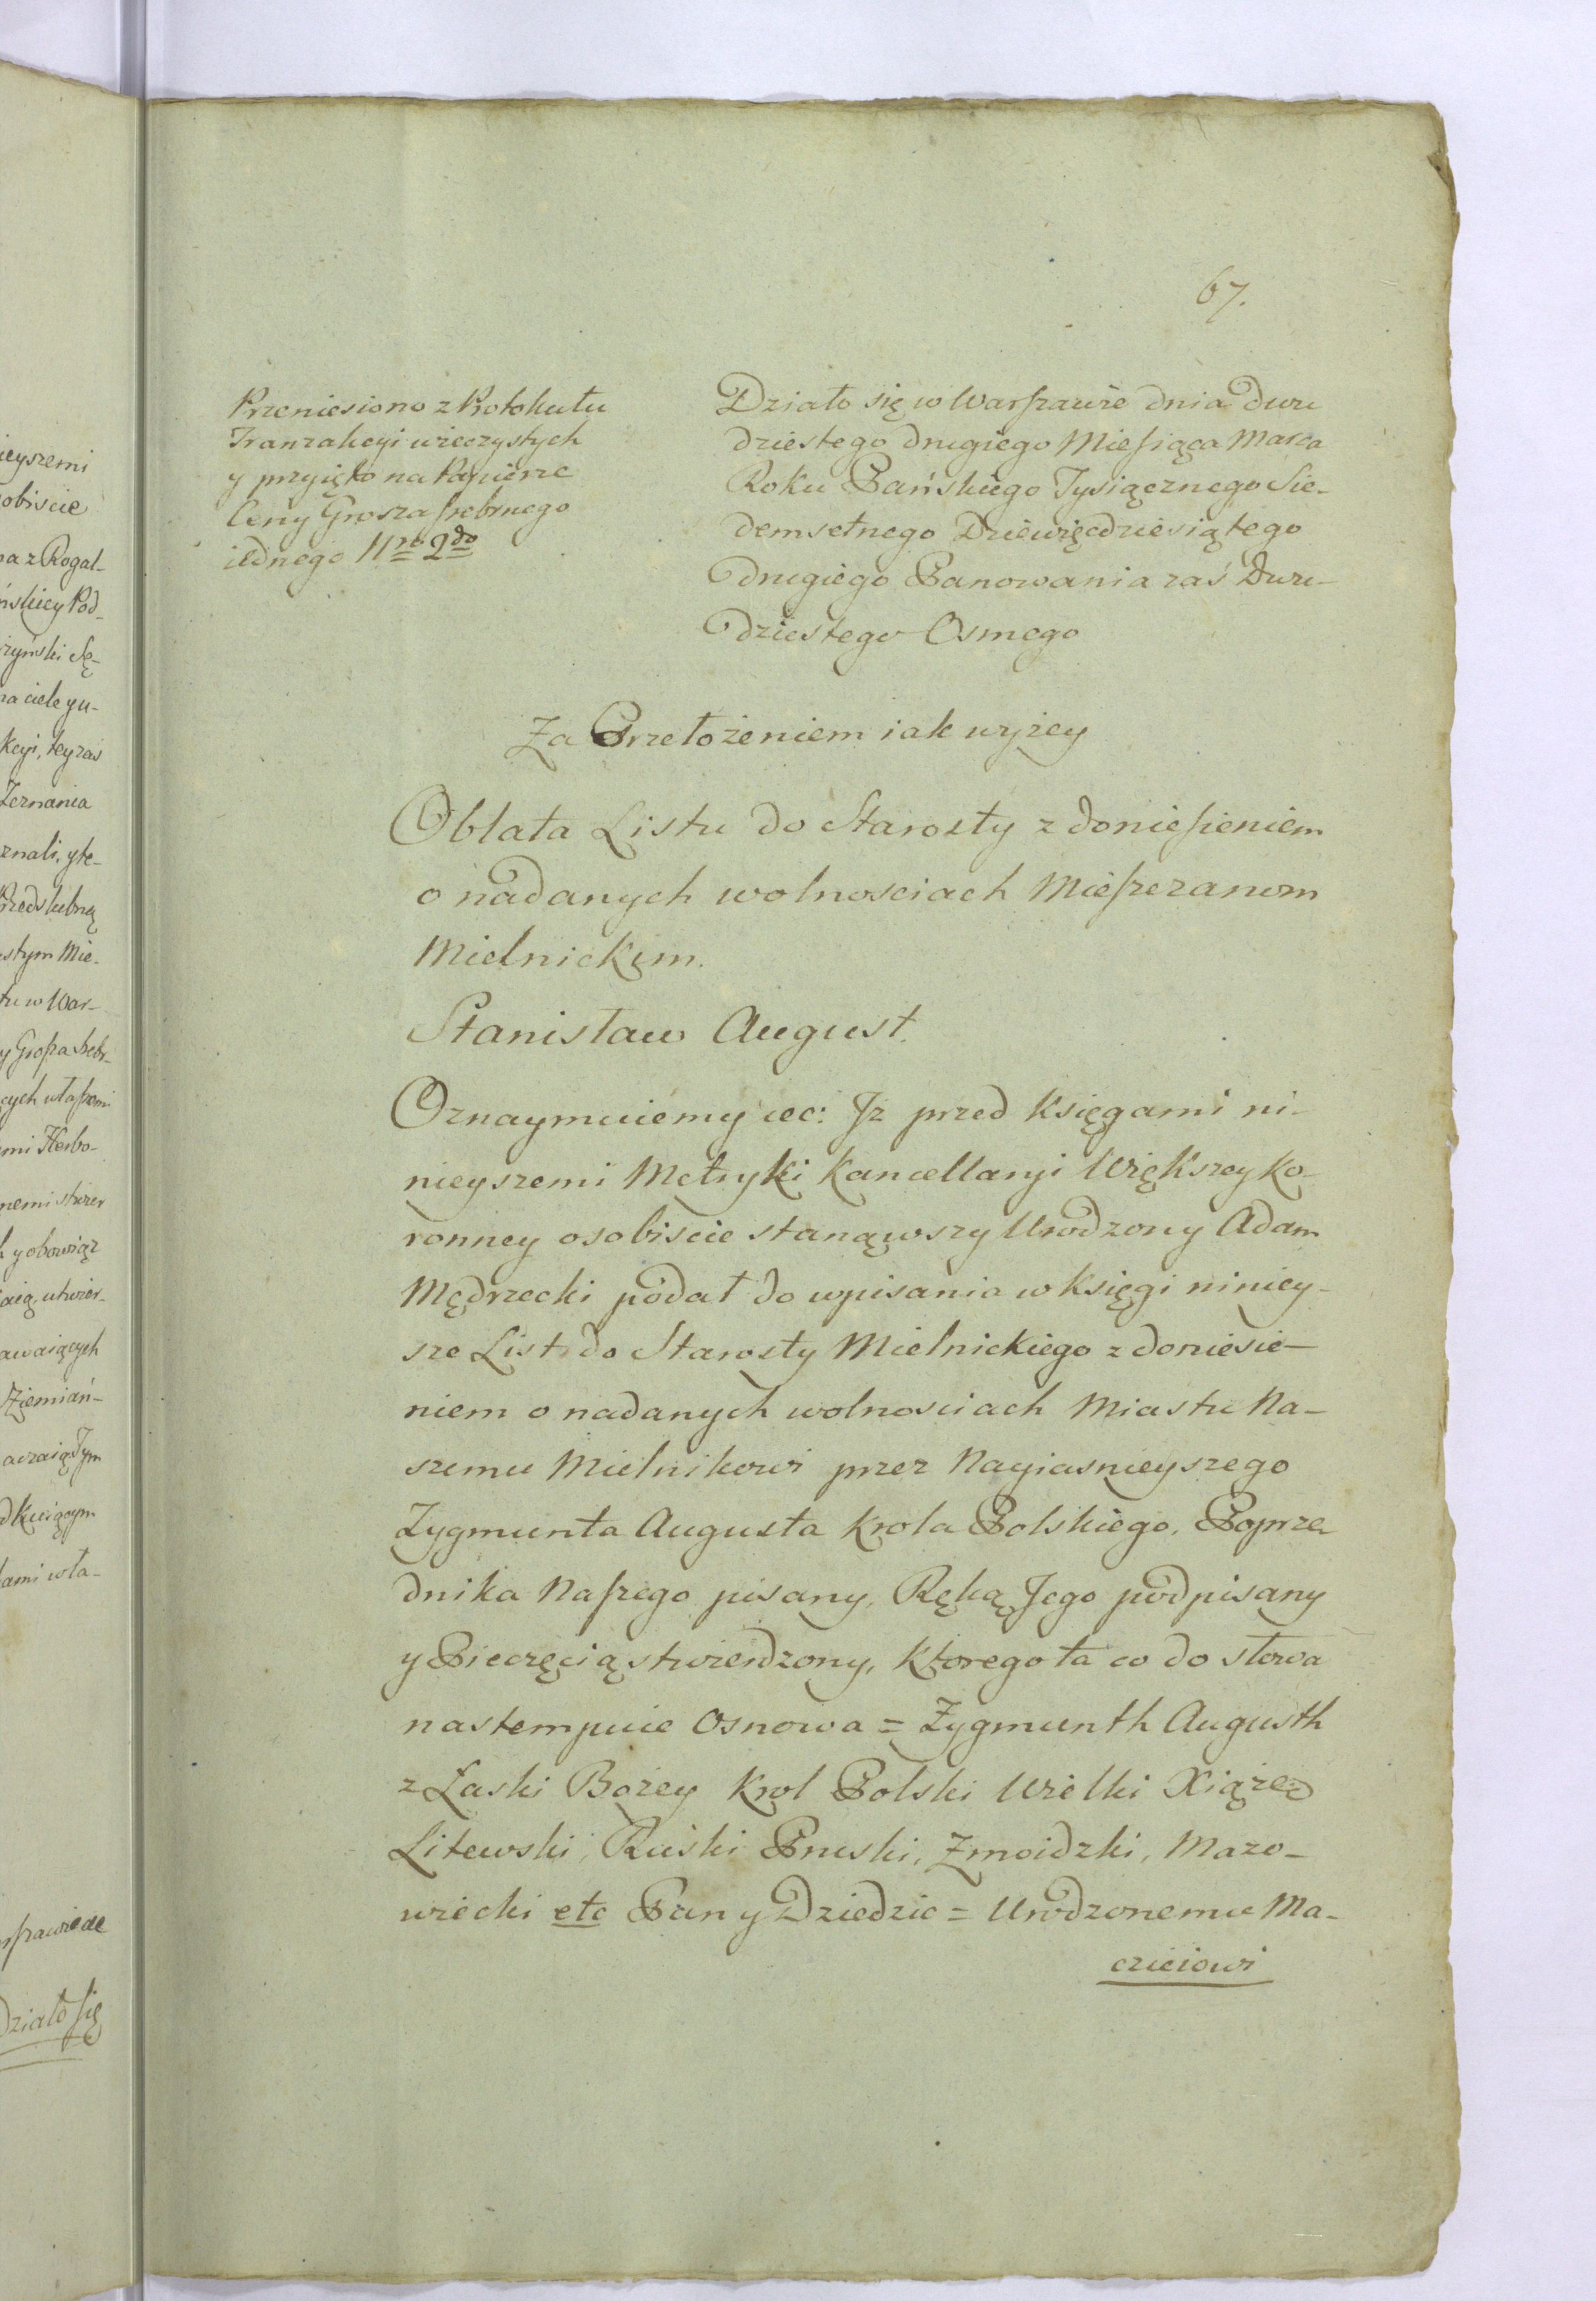 67.
Przeniesiono z Protokułu
Tranzakcyi wieczystych
y przyięto na Papierze
Ceny Grosza srebrnego
iednego Nro 2do
Działo się w Warszawie dnia Dwu
dziestego drugiego Miesiąca Marca
Roku Pańskiego Tysiącznego Sie-
demsetnego Dziewięcdziesiątego
drugiego Panowania zaś Dwu-
dziestego Osmego
Za Przełożeniem iak wyżey
Oblata Listu do Starosty z doniesieniem
o nadanych wolnosciach Mieszczanom
Mielnickim.
Stanisław August.
Oznaymuiemy etc: Iż przed Księgami ni-
nieyszemi Metryki Kancellaryi Większey Ko-
ronney osobiscie stanąwszy Urodzony Adam
Mędrzecki podał do wpisania w Księgi niniey-
sze List do Starosty Mielnickiego z doniesie-
niem o nadanych wolnosciach Miastu Na-
szemu Mielnikowi przez Nayiasnieyszego
Zygmunta Augusta Krola Polskiego, Poprze-
dnika Naszego pisany, Ręką Jego podpisany
y Pieczęcią stwierdzony, ktorego ta co do słowa
nastempuie Osnowa = Zygmunth Augusth
z Łaski Bożey Krol Polski Wielki Xiąże
Litewski, Ruski Pruski, Zmoidzki, Mazo-
wiecki etc Pan y Dziedzic = Urodzonemu Ma-
czieiowi
ieyszemi
obiscie
na z Rogal-
ńskiey Pod-
na ciele y u-
kcyi, tey zas
Zeznania
znali, y te-
Przedslubną
stym Mie-
tu w War-
y Grosza srebr-
mi Herbo-
h y obowiąz
aią, utwier-
awaiących
Ziemiań-
ami wła-
Działo się